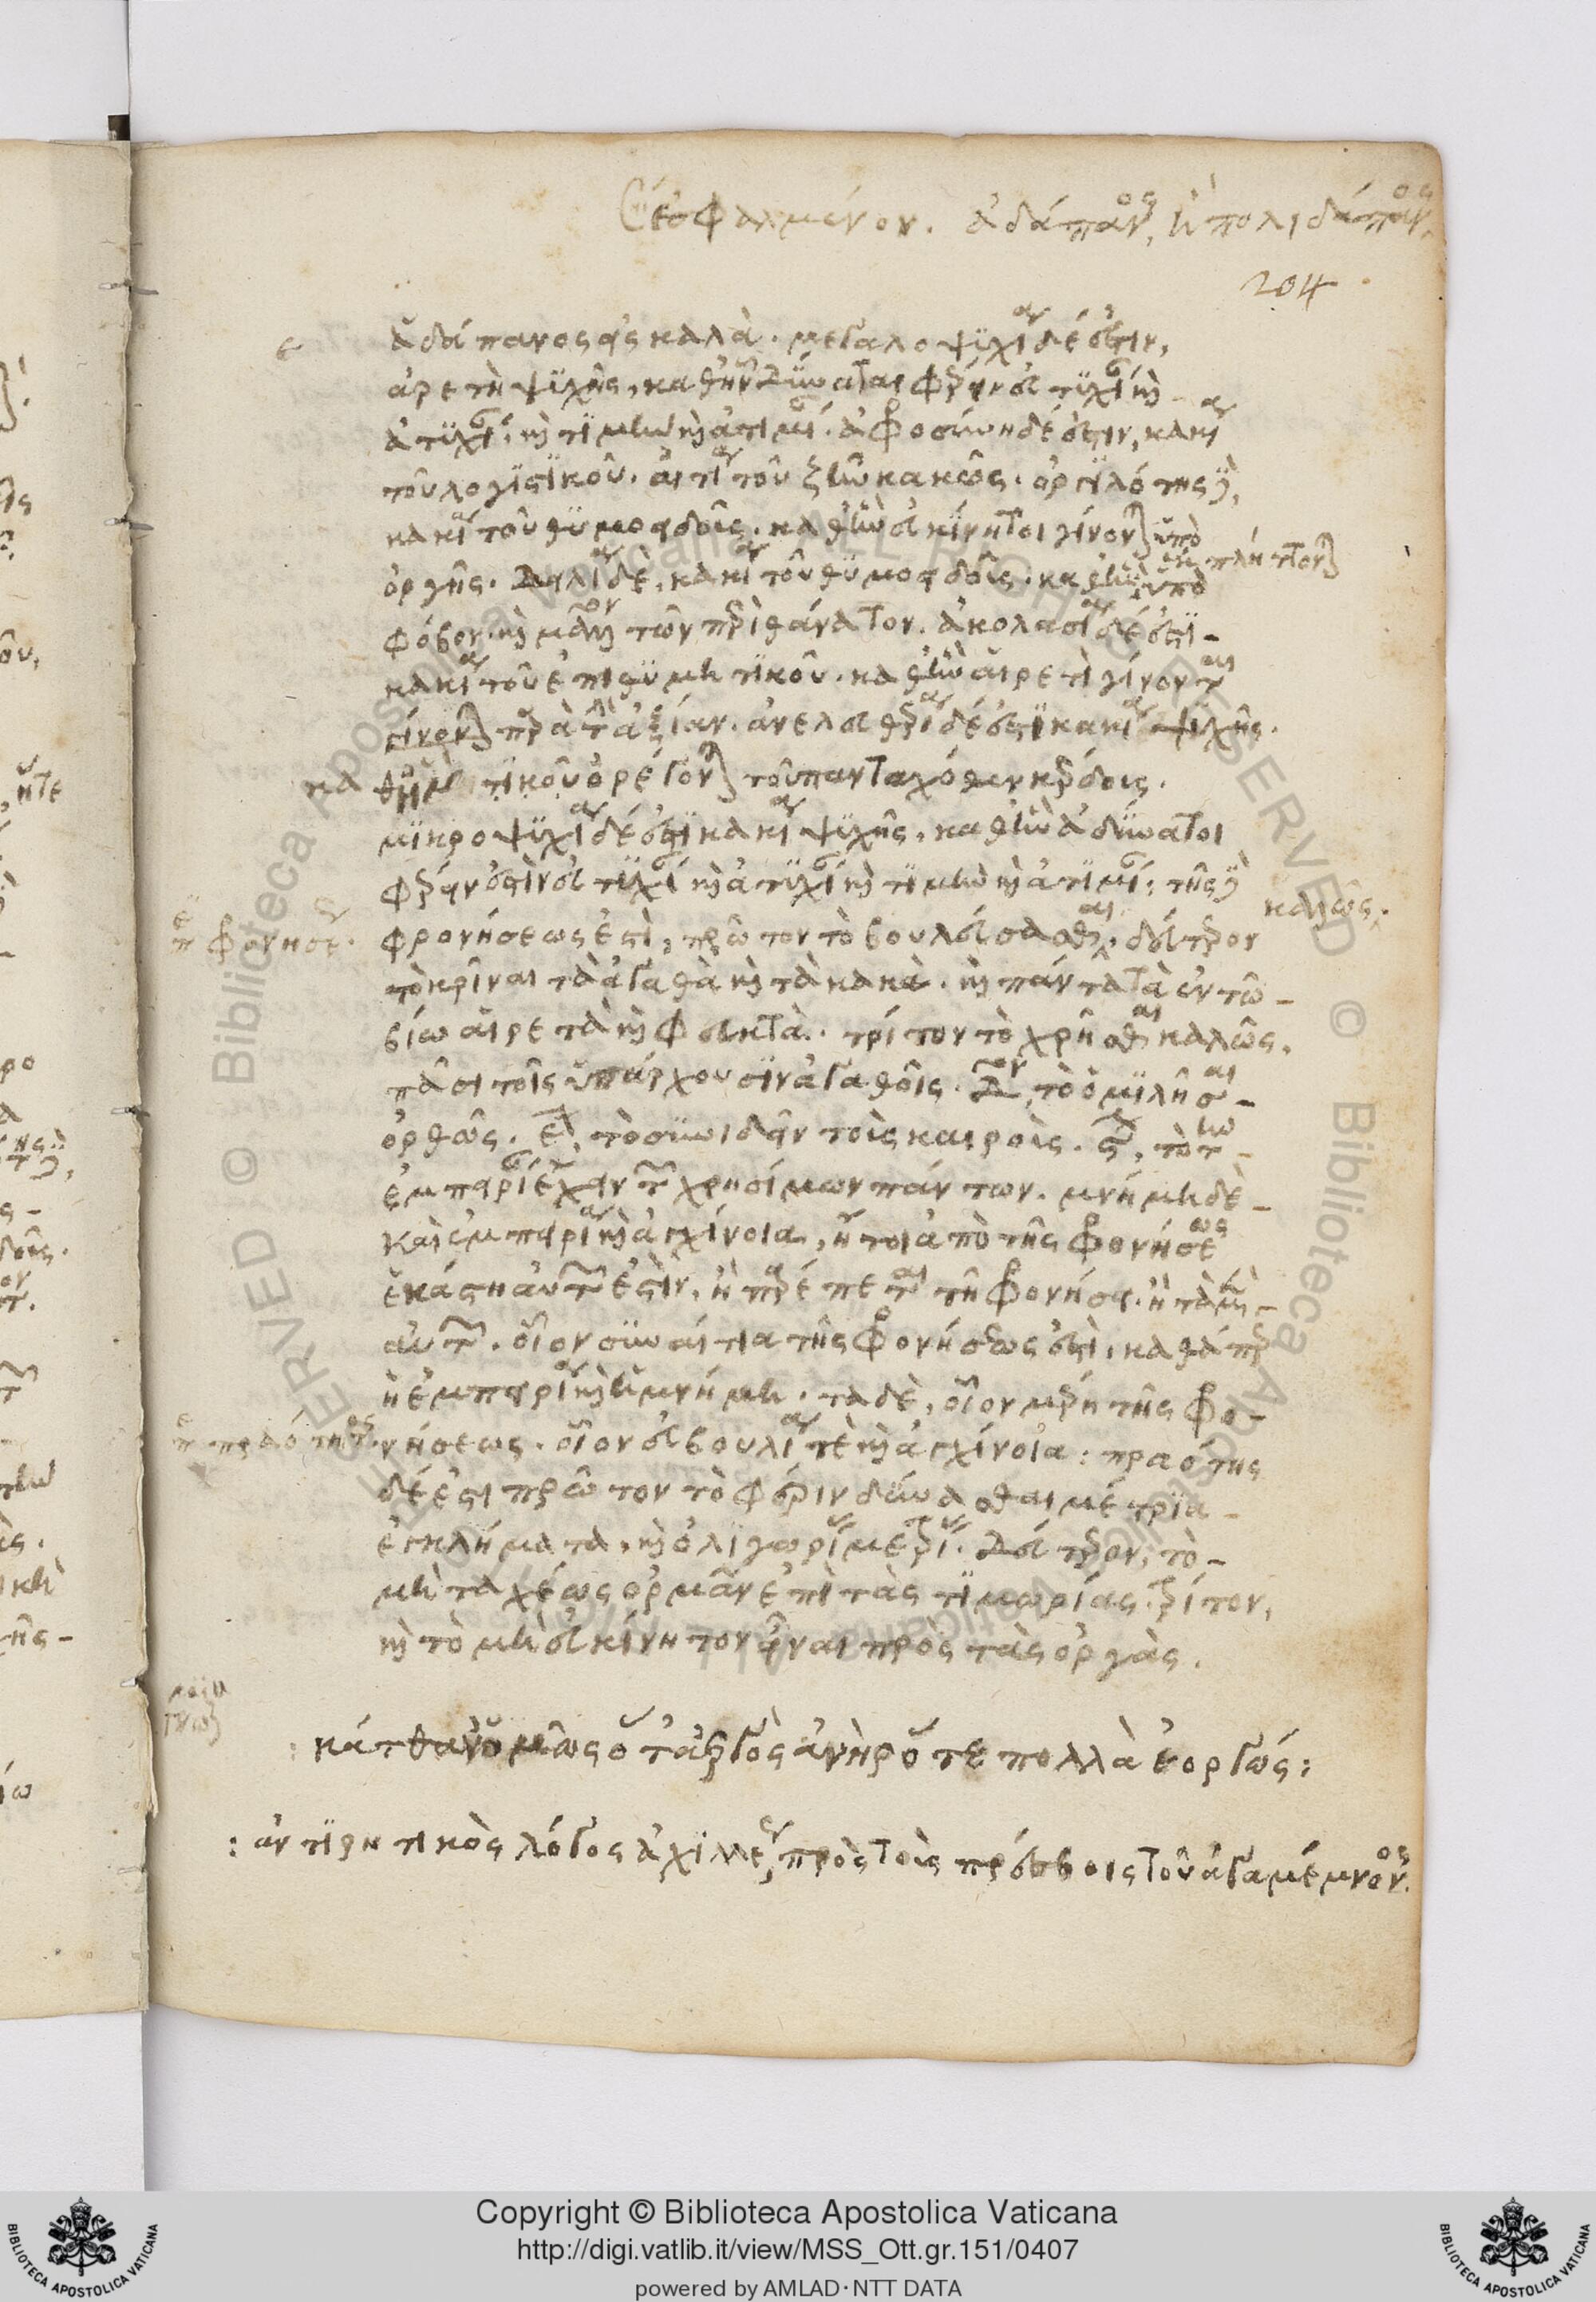 Ἐσφαλμένον. ἀδάπανος, ἢ πολιδάπανος
204
ἀδάπανος εἰς καλά. μεγαλοψυχία δέ ἐστιν,
ἀρετὴ ψυχῆς, καθ' ἣν δύναται φέρειν εὐτυχίαν καὶ
ἀτυχίαν, καὶ τιμὴν καὶ ἀτιμίαν. ἀφροσύνη δέ ἐστιν, κακία
τοῦ λογιστικοῦ. αἰτία τοῦ ζῆν κακῶς. ὀργιλότης δὲ,
κακία τοῦ θυμοειδοῦς. καθ' ἣν εὐκίνητοι γίνονται ὑπὸ
ὀργῆς. δειλία δὲ, κακία τοῦ θυμοειδοῦς. καθ' ἣν ἐκπλήττονται ὑπὸ
φόβον. καὶ μάλιστα τῶν περὶ θάνατον. ἀκολασία δέ ἐστι
κακία τοῦ ἐπιθυμητικοῦ. καθ' ἣν αἱρετὶ γίνονται
γίνονται παρὰ τὴν ἀξίαν. ἀνελευθερία δέ ἐστι κακία ψυχῆς.
καθ' ἣν ὀρέγονται τοῦ πανταχόθεν κέρδοις.
μικροψυχία δέ ἐστι κακία ψυχῆς, καθ' ἣν ἀδύνατοι
φέρειν εἰσὶν εὐτυχίαν καὶ ἀτυχίαν καὶ τιμὴν καὶ ἀτιμίαν: τῆς δὲ
καλῶς.
φρονήσεως ἐστὶ, πρῶτον τὸ βουλεύσασθαι. δεύτερον
τὸ κρῖναι τὰ ἀγαθὰ καὶ τὰ κακὰ. καὶ πάντα τὰ ἐν τῶ
βίω αἱρετὰ καὶ φευκτὰ. τρίτον τὸ χρῆσθαι καλῶς,
πᾶσι τοῖς ὑπάρχουσιν ἀγαθοῖς. Δον, τὸ ὁμιλῆσαι
ὀρθῶς. εον, τὸ συνιδεῖν τοῖς καιροῖς. ϛον, τὸ τὴν
ἐμπειρίαν ἔχειν τῶν χρησίμων πάντων. μνήμη δὲ
καὶ ἐμπειρία καὶ ἀγχίνοια, ἤτοι ἀπὸ τῆς φρονήσεως
ἑκάστη αὐτῶν ἐστὶν, ἢ παρέπεται τῆ φρονήσει. ἢ τὰ μὲν
αὐτῶν. οἷον συναίτια τῆς φρονήσεως ἐστὶ, καθάπερ
ἡ ἐμπειρία καὶ ἡ μνήμη. τὰ δὲ, οἷον μέρη τῆς φρο-
νήσεως. οἷον εὐβουλία τὲ καὶ ἀγχίνοια: πραότης
δέ ἐστι πρῶτον τὸ φέριν δύνασθαι μέτρια
ἐγκλήματα, καὶ ὀλιγωρίας μετρίας. δεύτερον, τὸ
μὴ ταχέως ὁρμᾶν ἐπὶ τὰς τιμωρίας. τρίτον,
καὶ τὸ μὴ εὐκίνητον εἶναι πρὸς τὰς ὀργὰς.
κάτθαν' ὁμῶς ὅ τ' ἀεργὸς ἀνὴρ ὅ τε πολλὰ ἐοργώς:
: ἀντιρητικὸς λόγος ἀχιλλέως πρὸς τοὺς πρέσβοις τοῦ ἀγαμέμνονος.
Copyright © Biblioteca Apostolica Vaticana
http://digi.vatlib.it/view/MSS_Ott.gr.151/0407
powered by AMLAD·NTT DATA